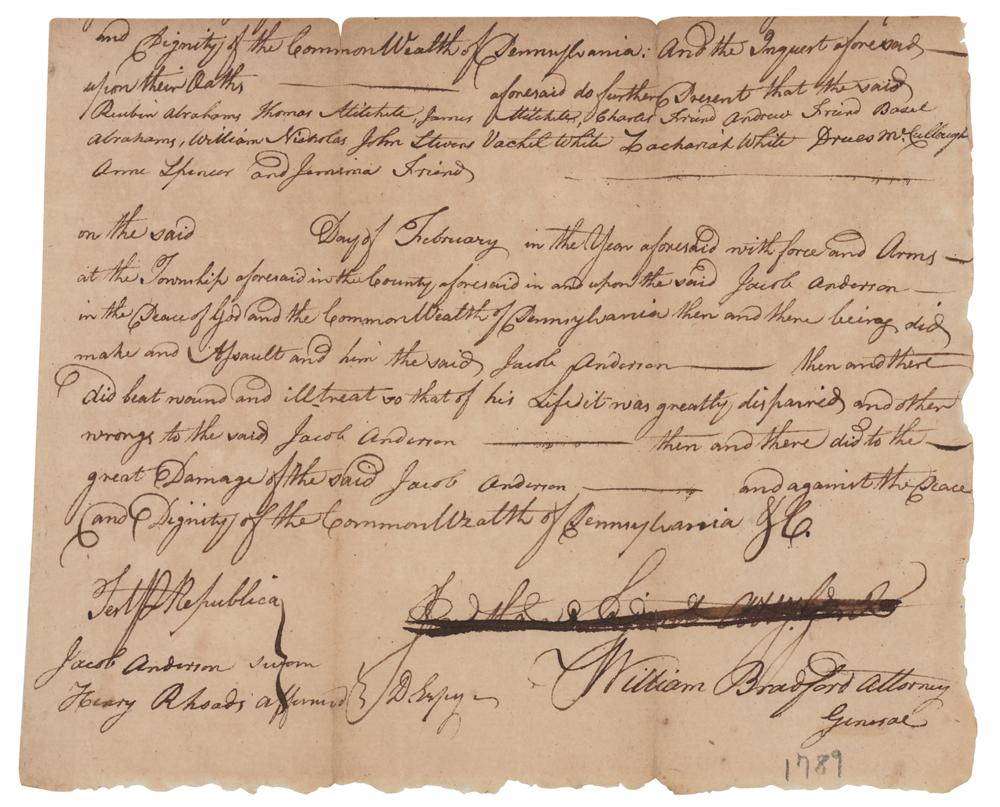 and Dignity of the CommonWealth of Pennsylvania: And the Inquest aforesaid
upon their Oaths aforesaid do further Present that the said
Reubin Abrahams Thomas Mitchele, James Mitcheler, Charles Friend Andrew Friend Basel
Abrahams, William Nickolas John Stevens Vachel White Zachariah White Drues McCullough
Anne Spencer and Jemima Friend
on the said Day of February in the Year aforesaid with force and Arms
at the Township aforesaid in the County aforesaid in and upon the said Jacob Anderson
in the Peace of God and the CommonWealth of Pennsylvania then and there being did
make and Assault and him the said Jacob Anderson then and there
did beat wound and illtreat so that of his Life it was greatly dispaired and other
wrongs to the said Jacob Anderson then and there did to the
great Damage of the said Jacob Anderson and against the Peace
and Dignity of the CommonWealth of Pennsylvania &C.
Test p Republica
Jacob Anderson sworn
Henry Rhoads affirmed } D Espy
William Bradford Attorney
General
1789